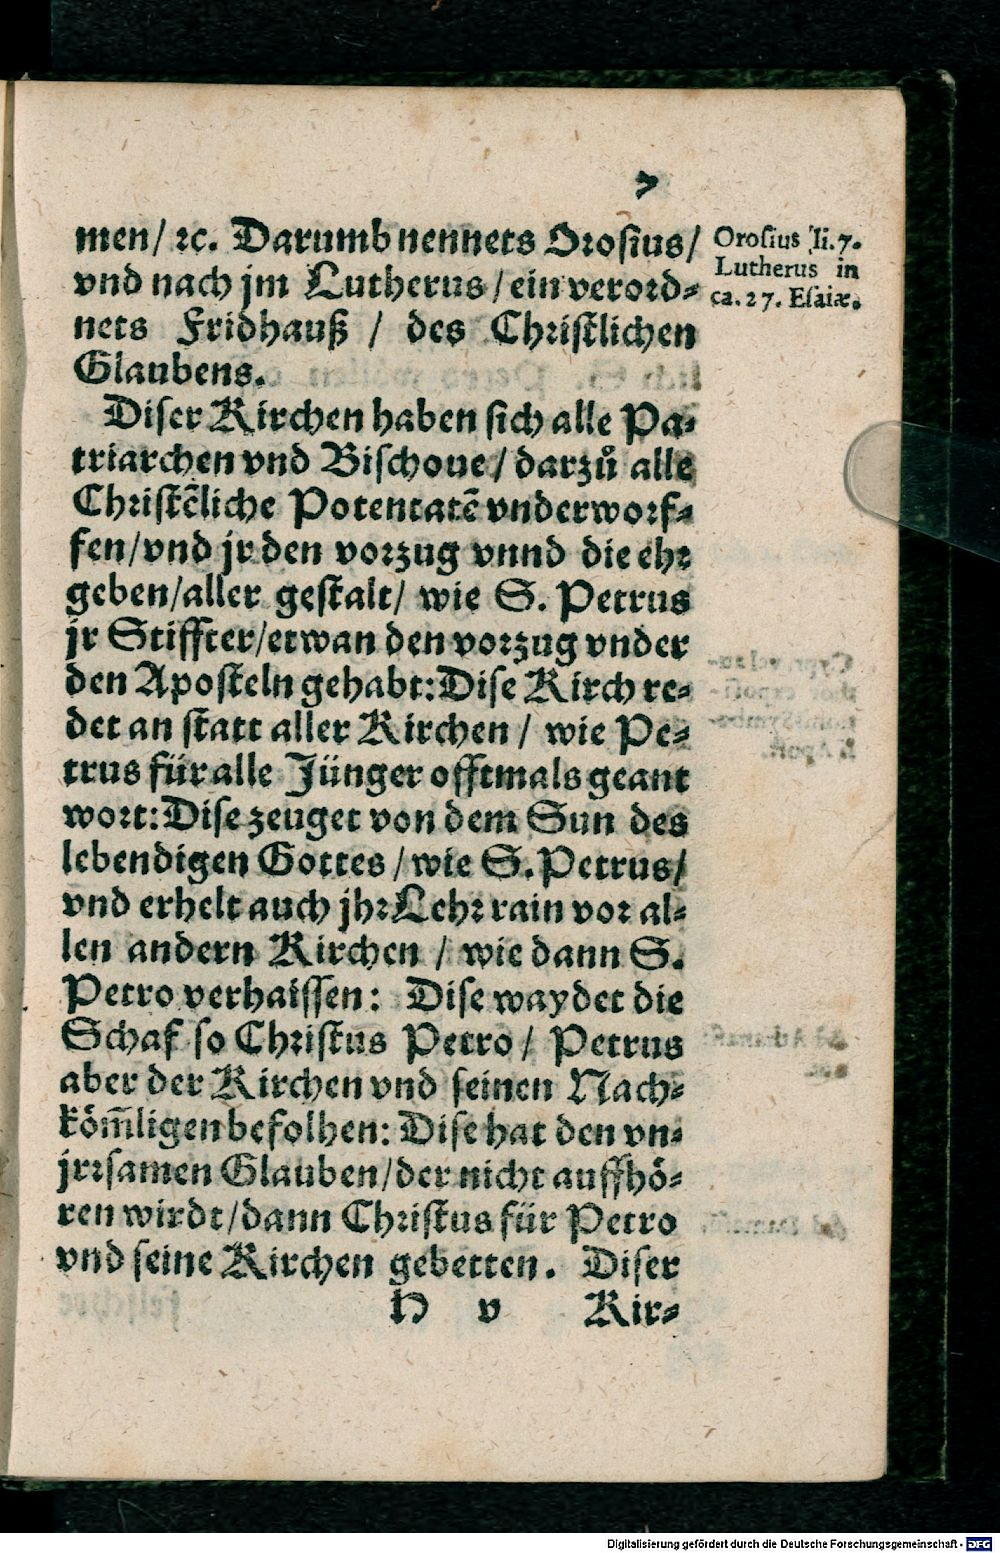 7
men/ ꝛc. Darumb nennets Orosius/
vnd nach jm Lutherus/ ein verord⸗
nets Fridhauß / des Christlichen
Glaubens.
Orosius li. 7.
Lutherus in
ca. 27. Esaiæ.
Diser Kirchen haben sich alle Pa⸗
triarchen vnd Bischoue/ darzů alle
Christẽliche Potentatẽ vnderworf⸗
fen/vnd jr den vorzug vnnd die ehr
geben/aller gestalt/ wie S. Petrus
jr Stiffter/etwan den vorzug vnder
den Aposteln gehabt: Dise Kirch re⸗
det an statt aller Kirchen / wie Pe⸗
trus für alle Jünger offtmals geant
wort: Dise zeuget von dem Sun des
lebendigen Gottes /wie S. Petrus/
vnd erhelt auch jhr Lehr rain vor al⸗
len andern Kirchen / wie dann S.
Petro verhaissen: Dise waydet die
Schaf so Christus Petro / Petrus
aber der Kirchen vnd seinen Nach⸗
köm̃ligen befolhen: Dise hat den vn⸗
jrrsamen Glauben/der nicht auffhö⸗
ren wirdt/dann Christus für Petro
vnd seine Kirchen gebetten. Diser
H v Kir⸗
Digitalisierung gefördert durch die Deutsche Forschungsgemeinschaft - DFG